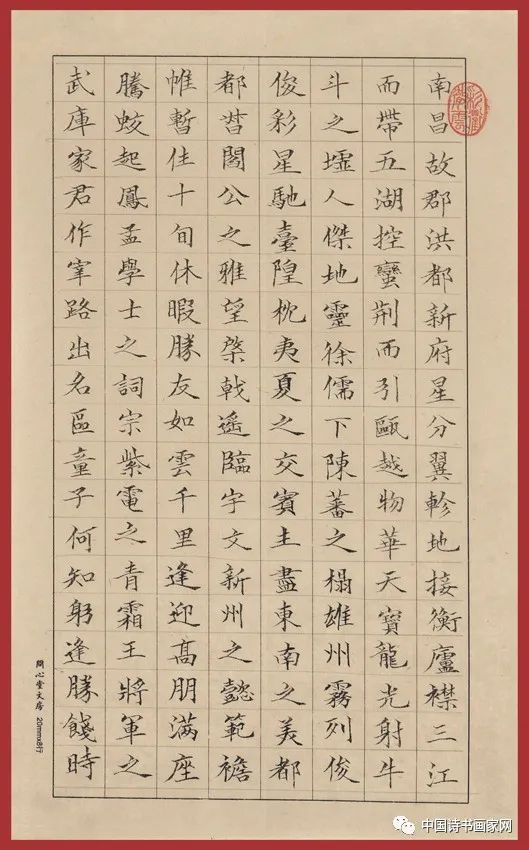 南昌故郡洪都新府星分翼軫地接衡廬襟三江
而帶五湖控蠻荆而引甌越物華天寶龍光射牛
斗之墟人傑地靈徐儒下陳蕃之榻雄州霧列俊
俊彩星馳臺隍枕夷夏之交賓主盡東南之美都
都督閻公之雅望棨戟遙臨宇文新州之懿範襜
帷暫住十旬休暇勝友如雲千里逢迎高朋滿座
騰蛟起鳳孟學士之詞宗紫電之青霜王將軍之
武庫家君作宰路出名區童子何知躬逢勝餞時
問心堂文房 20mmx8行
中国诗书画家网